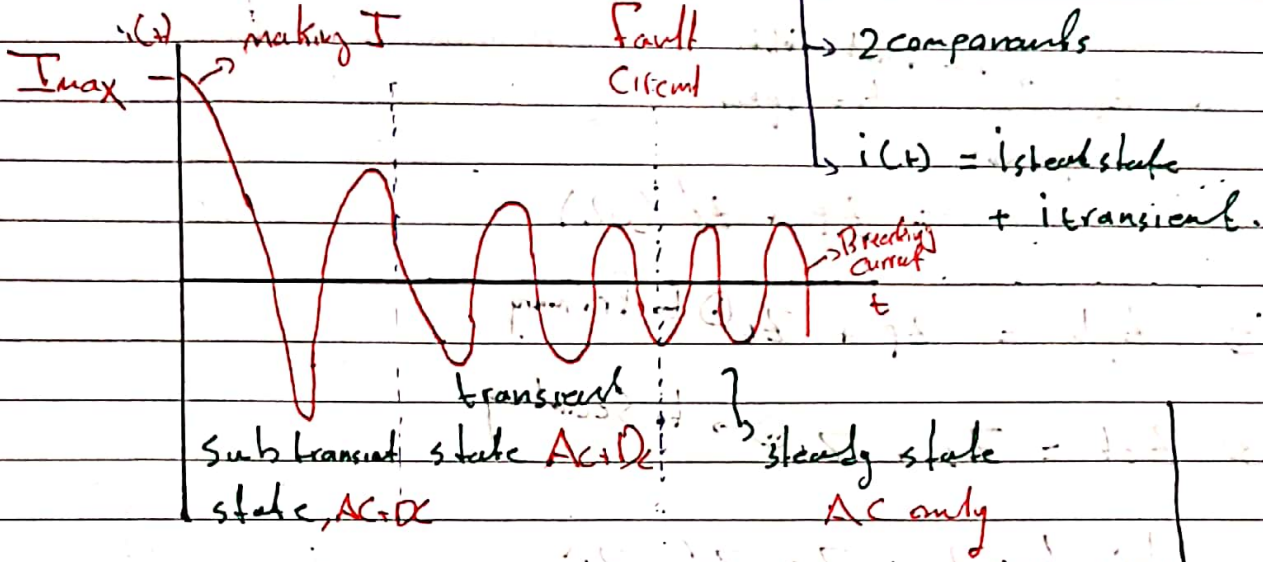 i(t) making I
Imax
Fault
Circuit
↳ 2 componants
↳ i(t) = isteadstate
+ itransient.
Breaking
current
t
transient
sub transint state AC+DC
state, AC+DC
steady state
AC only